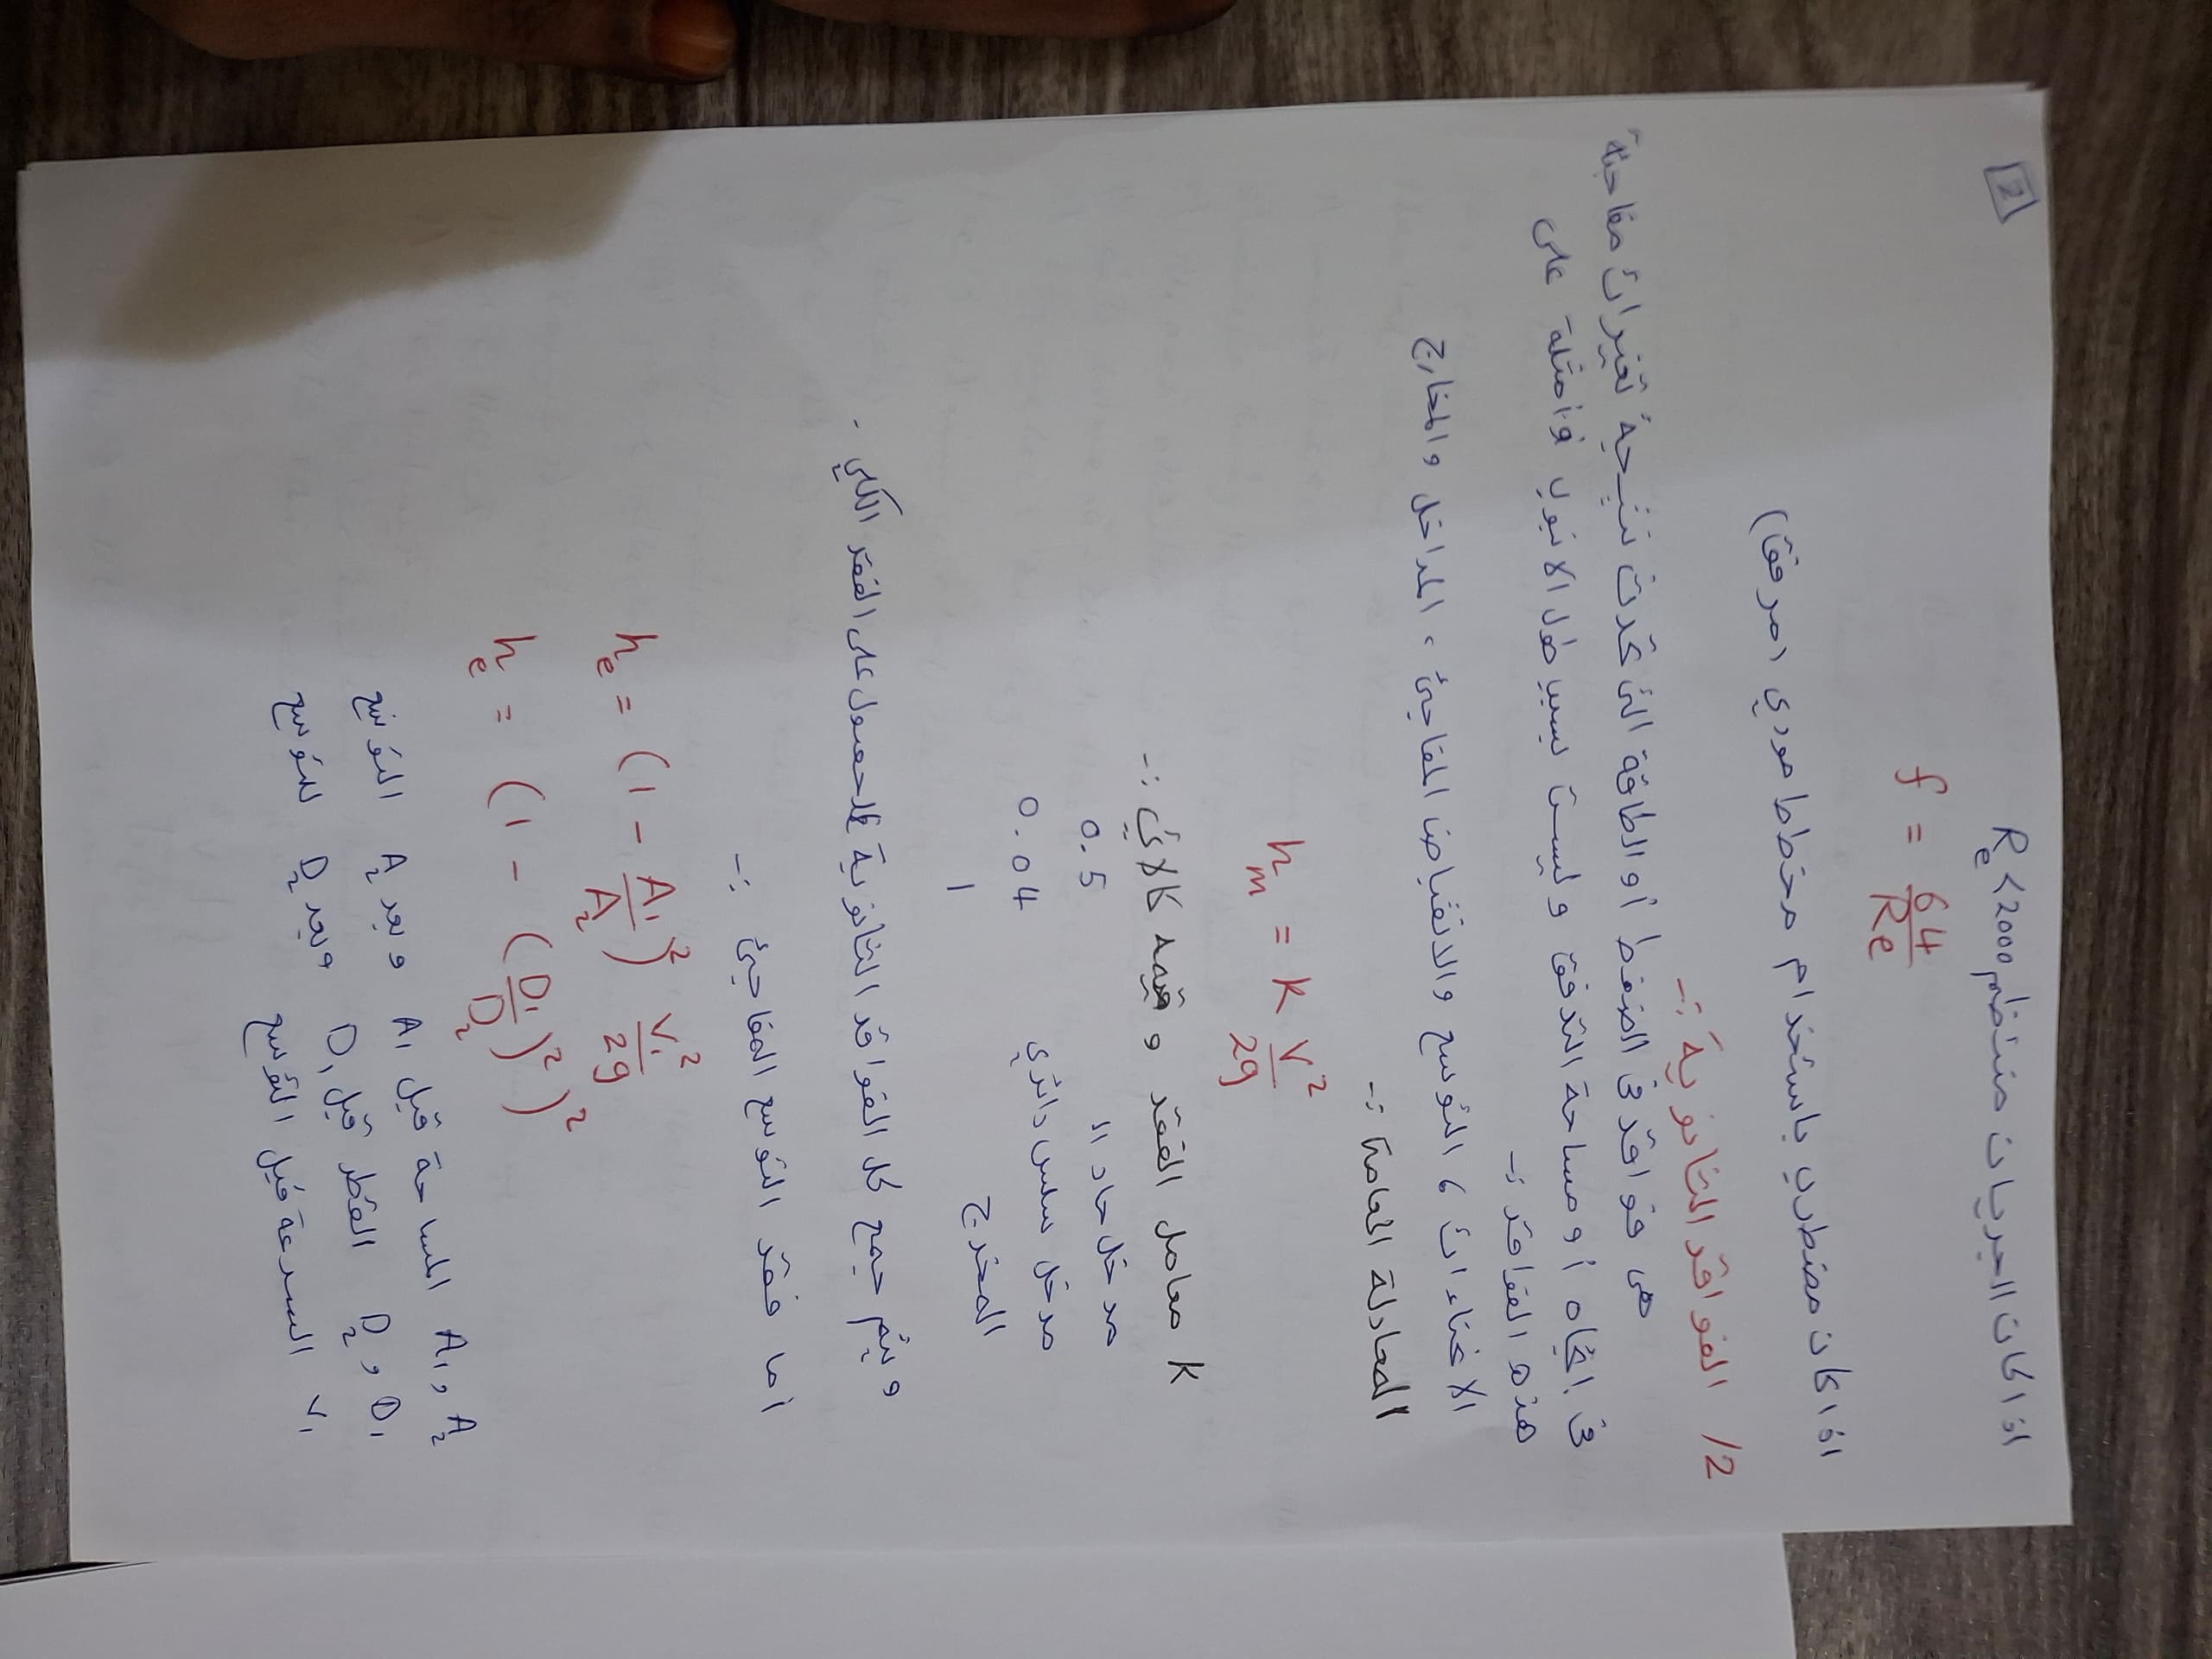 [2]
اذا كان الجريان منتظم Re<2000
f = 64/Re
اذا كان مضطرب باستخدام مخطط مودي (مرفق)
2/ الفواقد الثانوية :-
هى فواقد فى الضغط أو الطاقة التى تحدث نتيجة تغيرات مفاجئة
فى اتجاه أو مساحة التدفق وليست بسبب طول الانبوب وأمثلة على
هذه الفواقد :-
الانحناءات ، التوسع والانقباض المفاجئ ، المداخل والمخارج
المعادلة العامة :-
hm = K V²/2g
K معامل الفقد وقيمه كالاتي :-
مدخل حاد 0.5
مدخل سلس دائري 0.04
المخرج 1
ويتم جمع كل الفواقد الثانوية للحصول على الفقد الكلي .
أما فقد التوسع المفاجئ :-
he = (1 - A1/A2)² V1²/2g
he = (1 - (D1/D2)²)²
A1 و A2 المساحة قبل A1 وبعد A2 التوسع
D1 و D2 القطر قبل D1 وبعد D2 للتوسع
V1 السرعة قبل التوسع